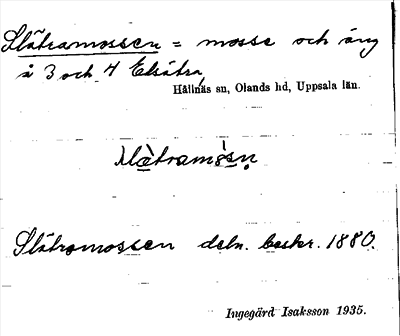 Slåtramossen = mosse och äng
å 3 och 4 Elsätra,
Hållnäs sn, Olands hd, Uppsala län.
Slåtramossen deln. beskr. 1880.
Ingegärd Isaksson 1935.